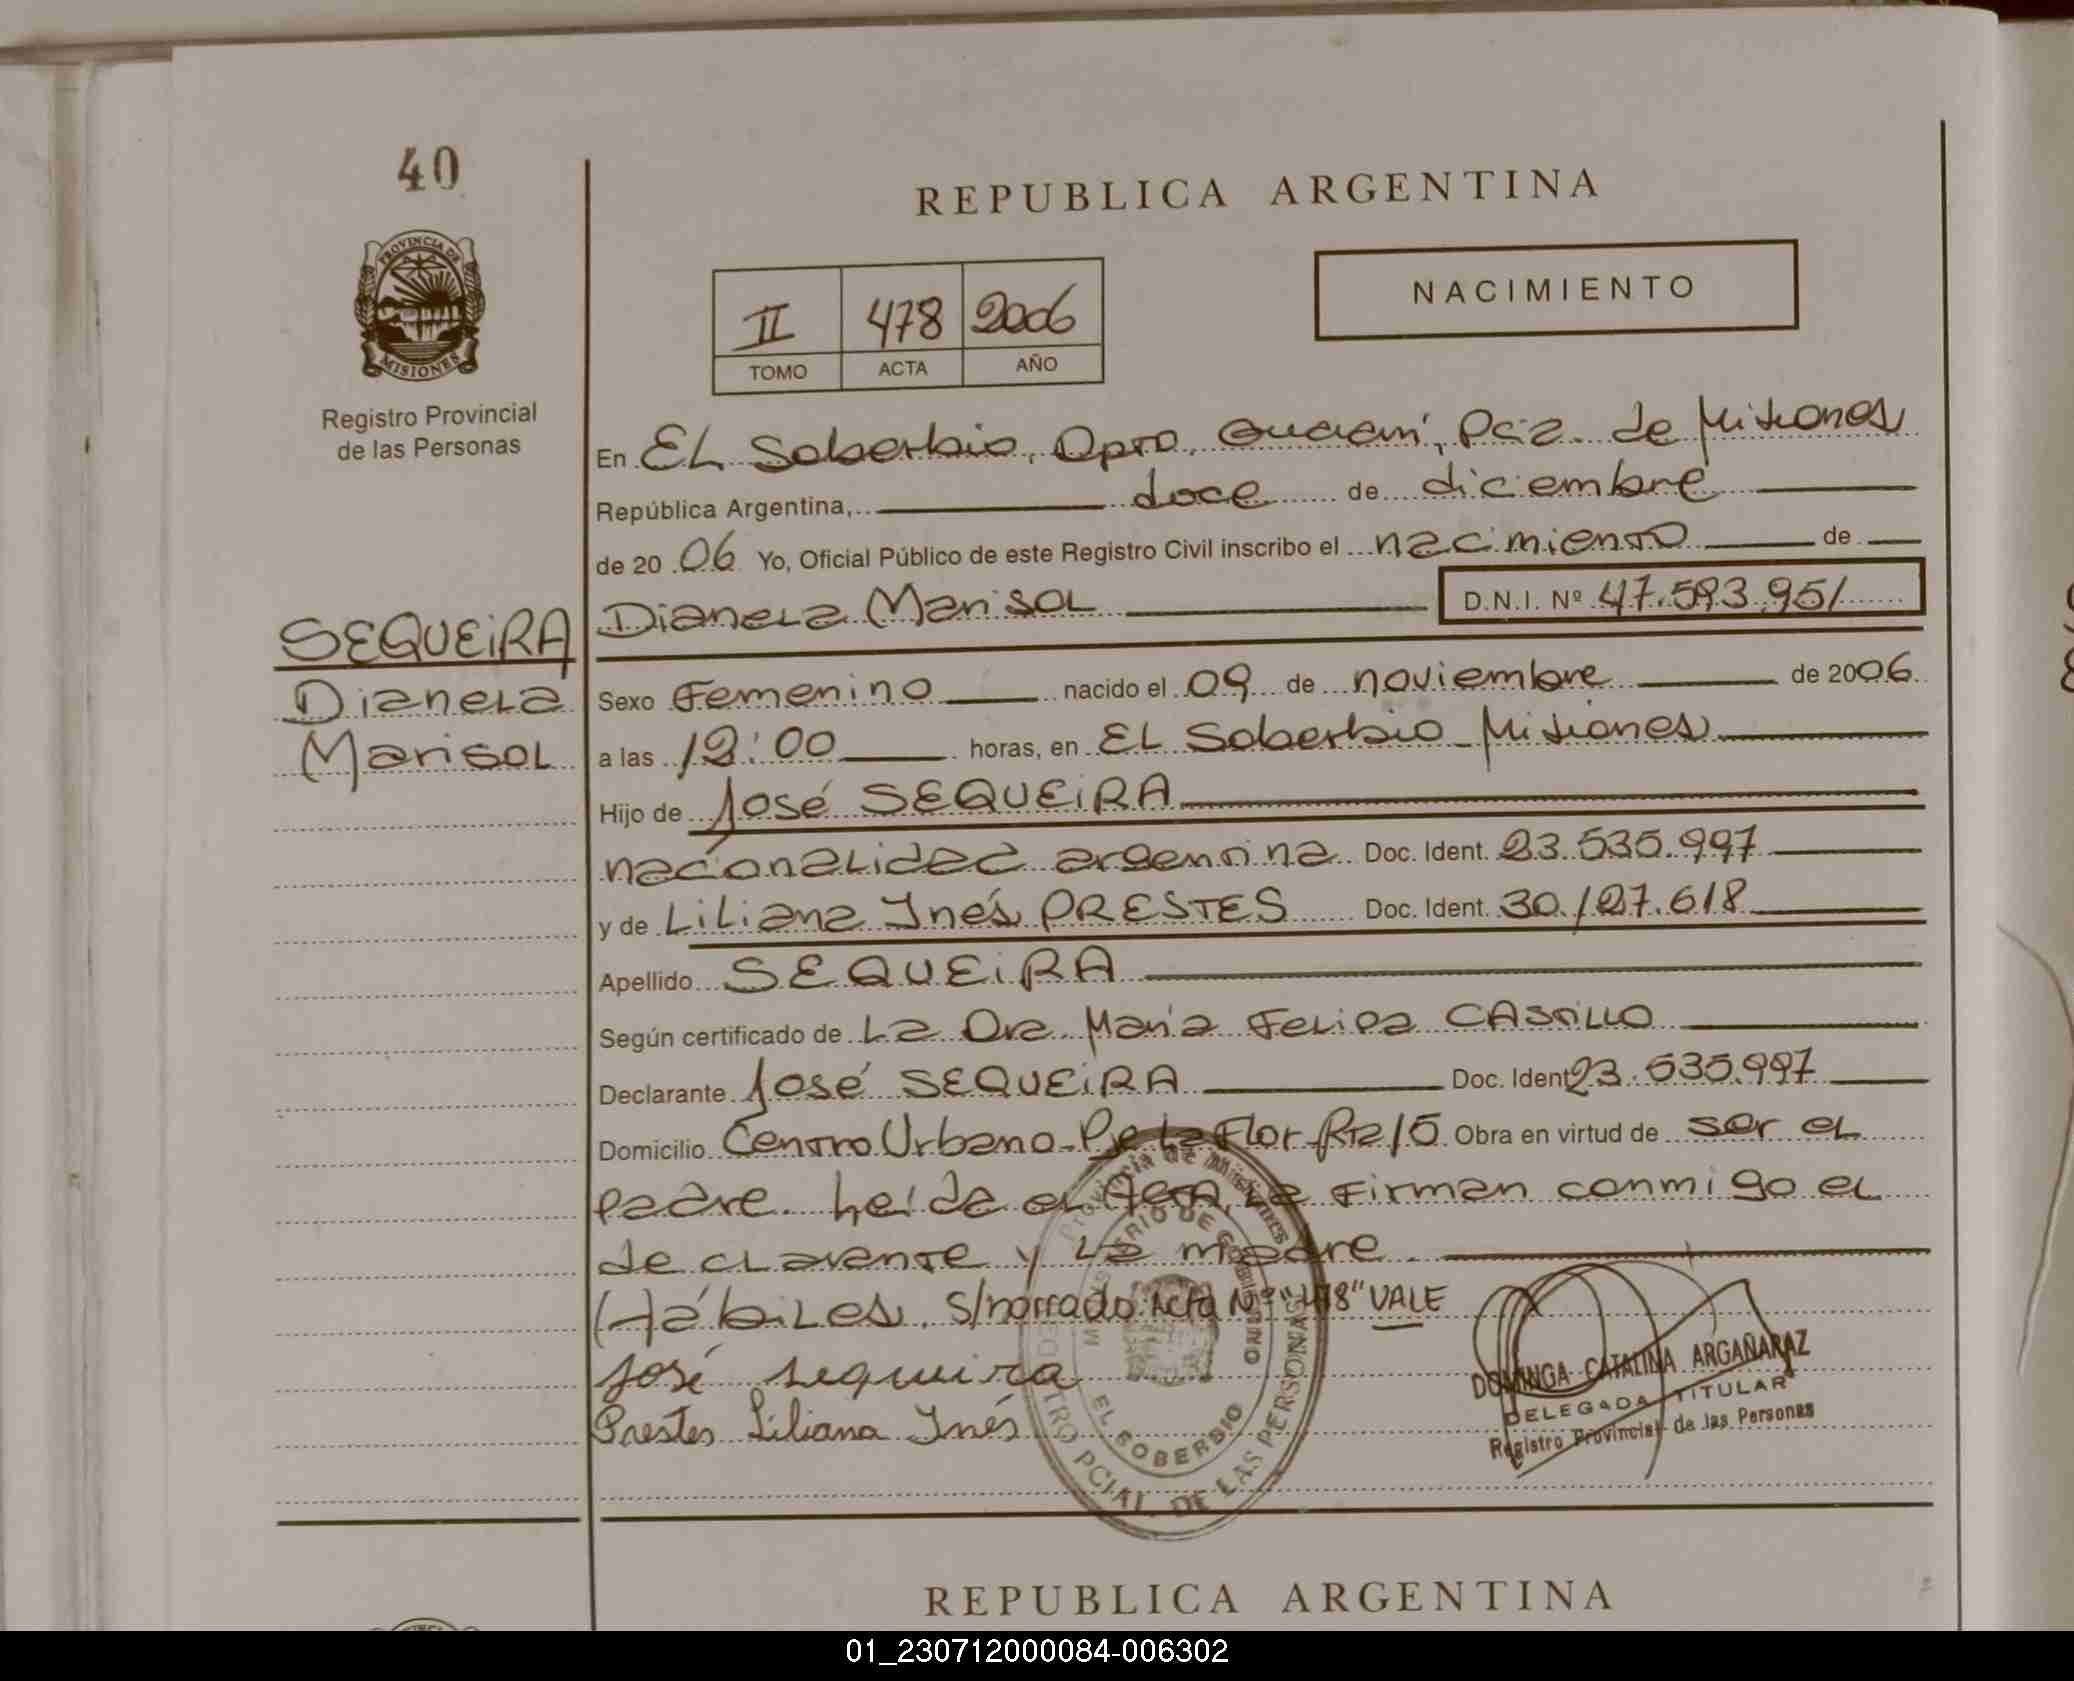 40
REPUBLICA ARGENTINA
PROVINCIA DE
MISIONES
NACIMIENTO
II 478 2006
TOMO ACTA AÑO
Registro Provincial
de las Personas
En EL Soberbio, Dpto. Guaraní, Pcia. de Misiones
República Argentina, doce de diciembre
de 2006 Yo, Oficial Público de este Registro Civil inscribo el nacimiento de
Dianela Marisol D.N.I. Nº 47.593.951
SEQUEIRA
Dianela
Marisol
Sexo Femenino nacido el 09 de noviembre de 2006
a las 12:00 horas, en EL Soberbio Misiones
Hijo de José SEQUEIRA
nacionalidad argentina Doc. Ident. 23.535.997
y de Liliana Inés PRESTES Doc. Ident. 30.127.618
Apellido SEQUEIRA
Según certificado de La Dra María Felipa CASTILLO
Declarante José SEQUEIRA Doc. Ident 23.535.997
Domicilio Centro Urbano - Pje La Flor Rta 15 Obra en virtud de ser el
padre. Leída el Acta, la firman conmigo el
declarante y la madre
Hábiles. S/borrado: Acta Nº "478" VALE
José sequeira
Prestes Liliana Inés
Provincia de Misiones
MINISTERIO DE GOBIERNO
EL SOBERBIO
REGISTRO PCIAL. DE LAS PERSONAS
DOMINGA CATALINA ARGAÑARAZ
DELEGADA TITULAR
Registro Provincial de las Personas
REPUBLICA ARGENTINA
01_230712000084-006302